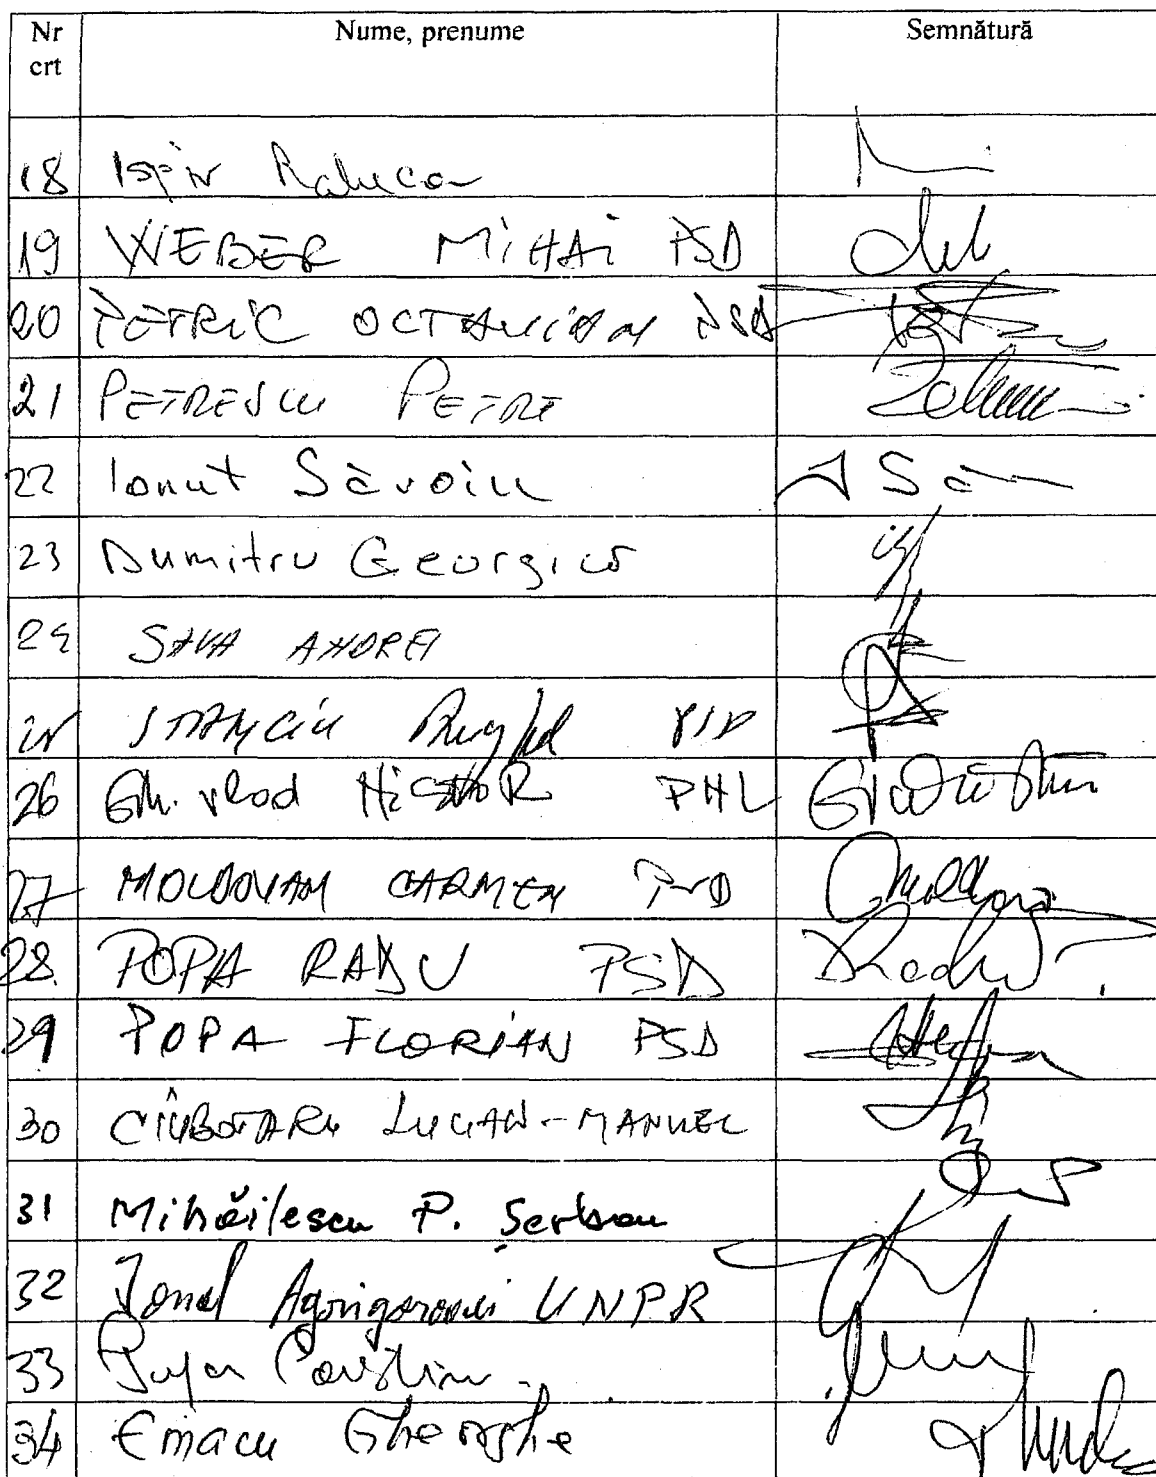 Nr crt Nume, prenume Semnătură
18 Ispir Raluca
19 WEBER MIHAI PSD
20 PETRIC OCTAVIAN PSD
21 PETRESCU PETRE
22 Ionut Săvoiu
23 Dumitru Georgică
24 SAVA ANDREI
STANCIU PSD
26 Gh. Vlad NISTOR PNL
27 MOLDOVAN CARMEN PSD
28 POPA RADU PSD
29 POPA FLORIAN PSD
30 CIUBOTARU LUCIAN-MANUEL
31 Mihăilescu P. Șerban
32 Ionel Agrigoroaei UNPR
33
34 Emacu Gheorghe